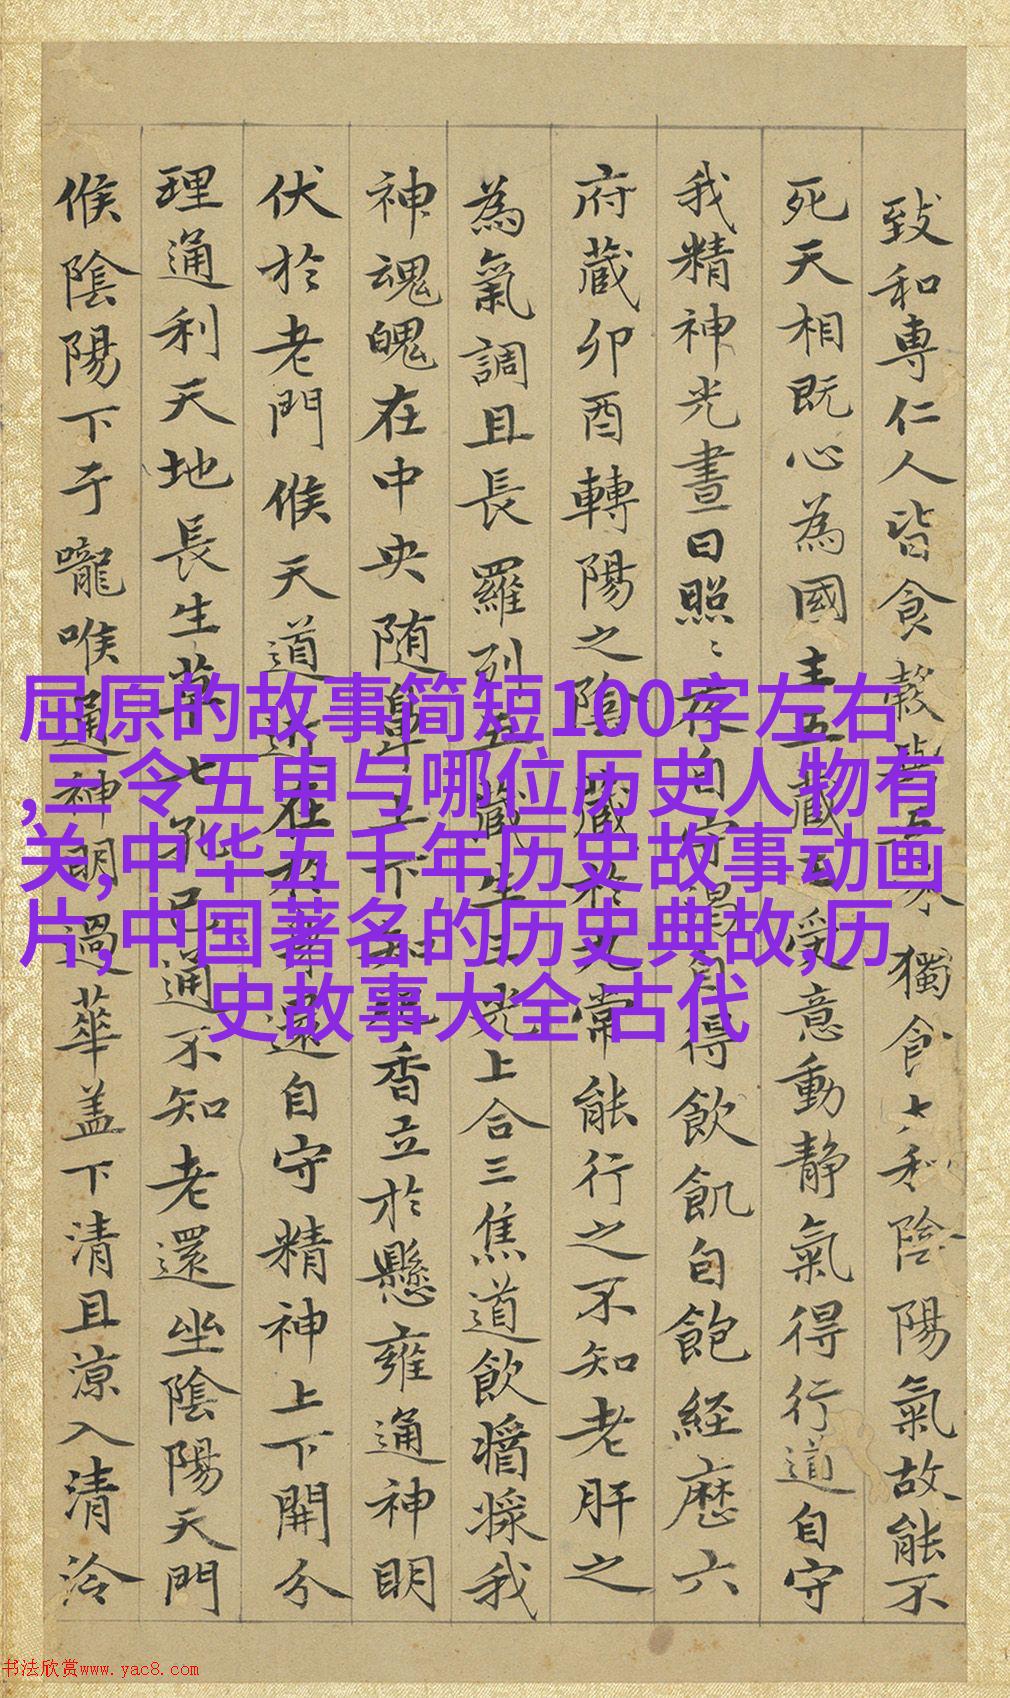 屈原的故事简短100字左右
,三令五申与哪位历史人物有
关,中华五千年历史故事动画
片,中国著名的历史典故,历
史故事大全 古代
致和專仁人皆食穀獨食大和陰陽氣故能不
死天相既心為國主五藏王受意動静氣得行道自守
我精神光晝日照〻夜自守渴自得飲飢自飽経歴六
府藏卯酉轉陽之陰藏於九常能行之不知老肝之
為氣調且長羅列五藏生三光上合三焦道飲醬漿我
神魂魄在中央随鼻上下知肥香立於懸雍通神明
伏於老門候天道近在於身還自守精神上下開分
理通利天地長生草七孔已通不知老還坐陰陽天門
候陰陽下于嚨喉通神明過華蓋下清且涼入清泠
书法欣赏www.yac8.com